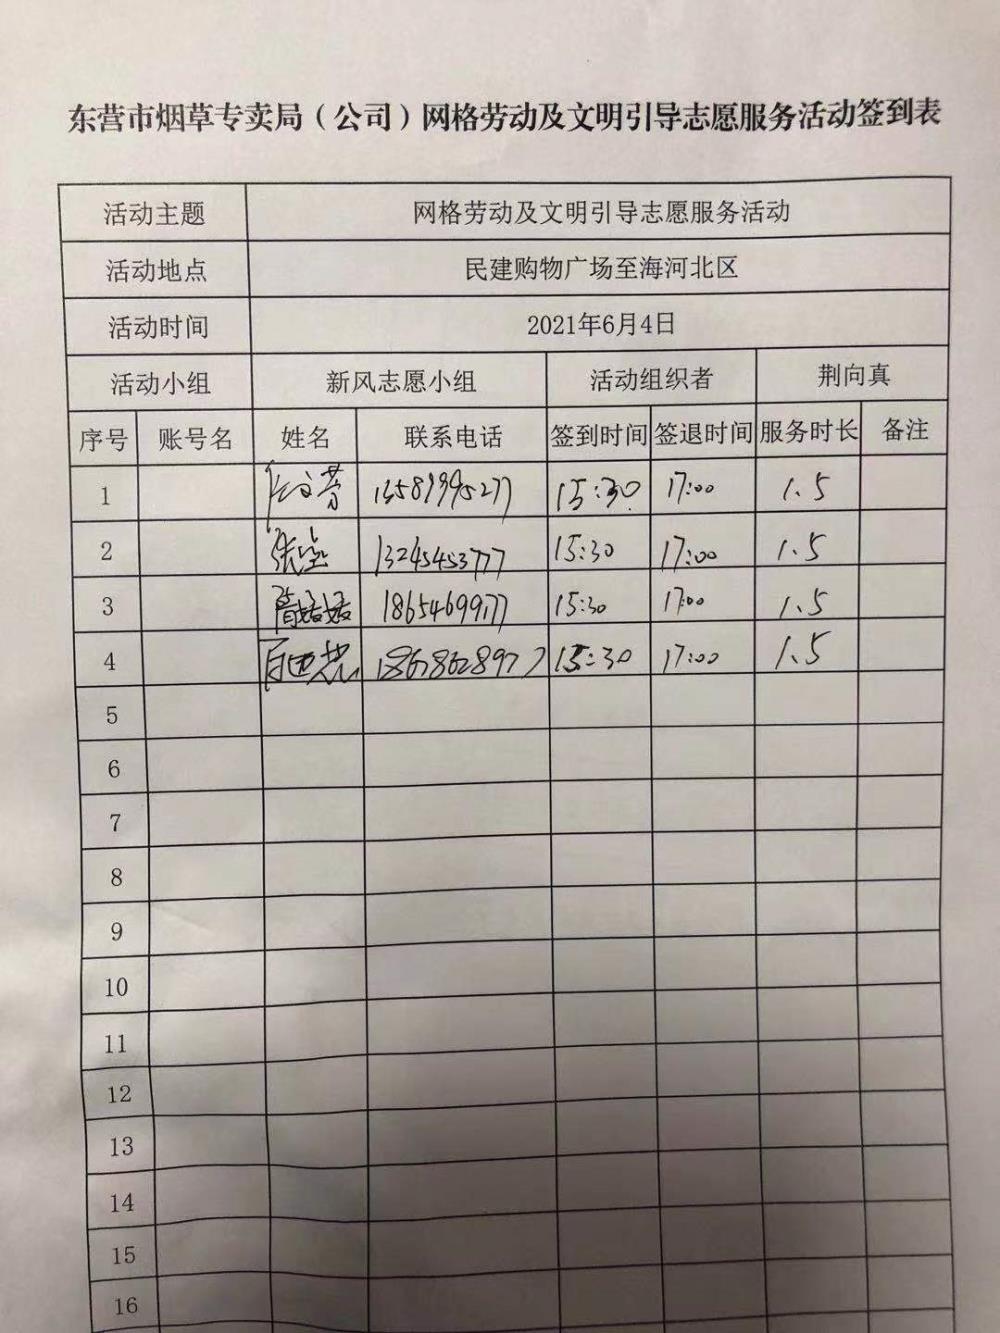 东营市烟草专卖局（公司）网格劳动及文明引导志愿服务活动签到表
活动主题 网格劳动及文明引导志愿服务活动
活动地点 民建购物广场至海河北区
活动时间 2021年6月4日
活动小组 新风志愿小组 活动组织者 荆向真
序号 账号名 姓名 联系电话 签到时间 签退时间 服务时长 备注
1 15:30 17:00 1.5
2 13245453777 15:30 17:00 1.5
3 15:30 17:00 1.5
4 15:30 17:00 1.5
5
6
7
8
9
10
11
12
13
14
15
16